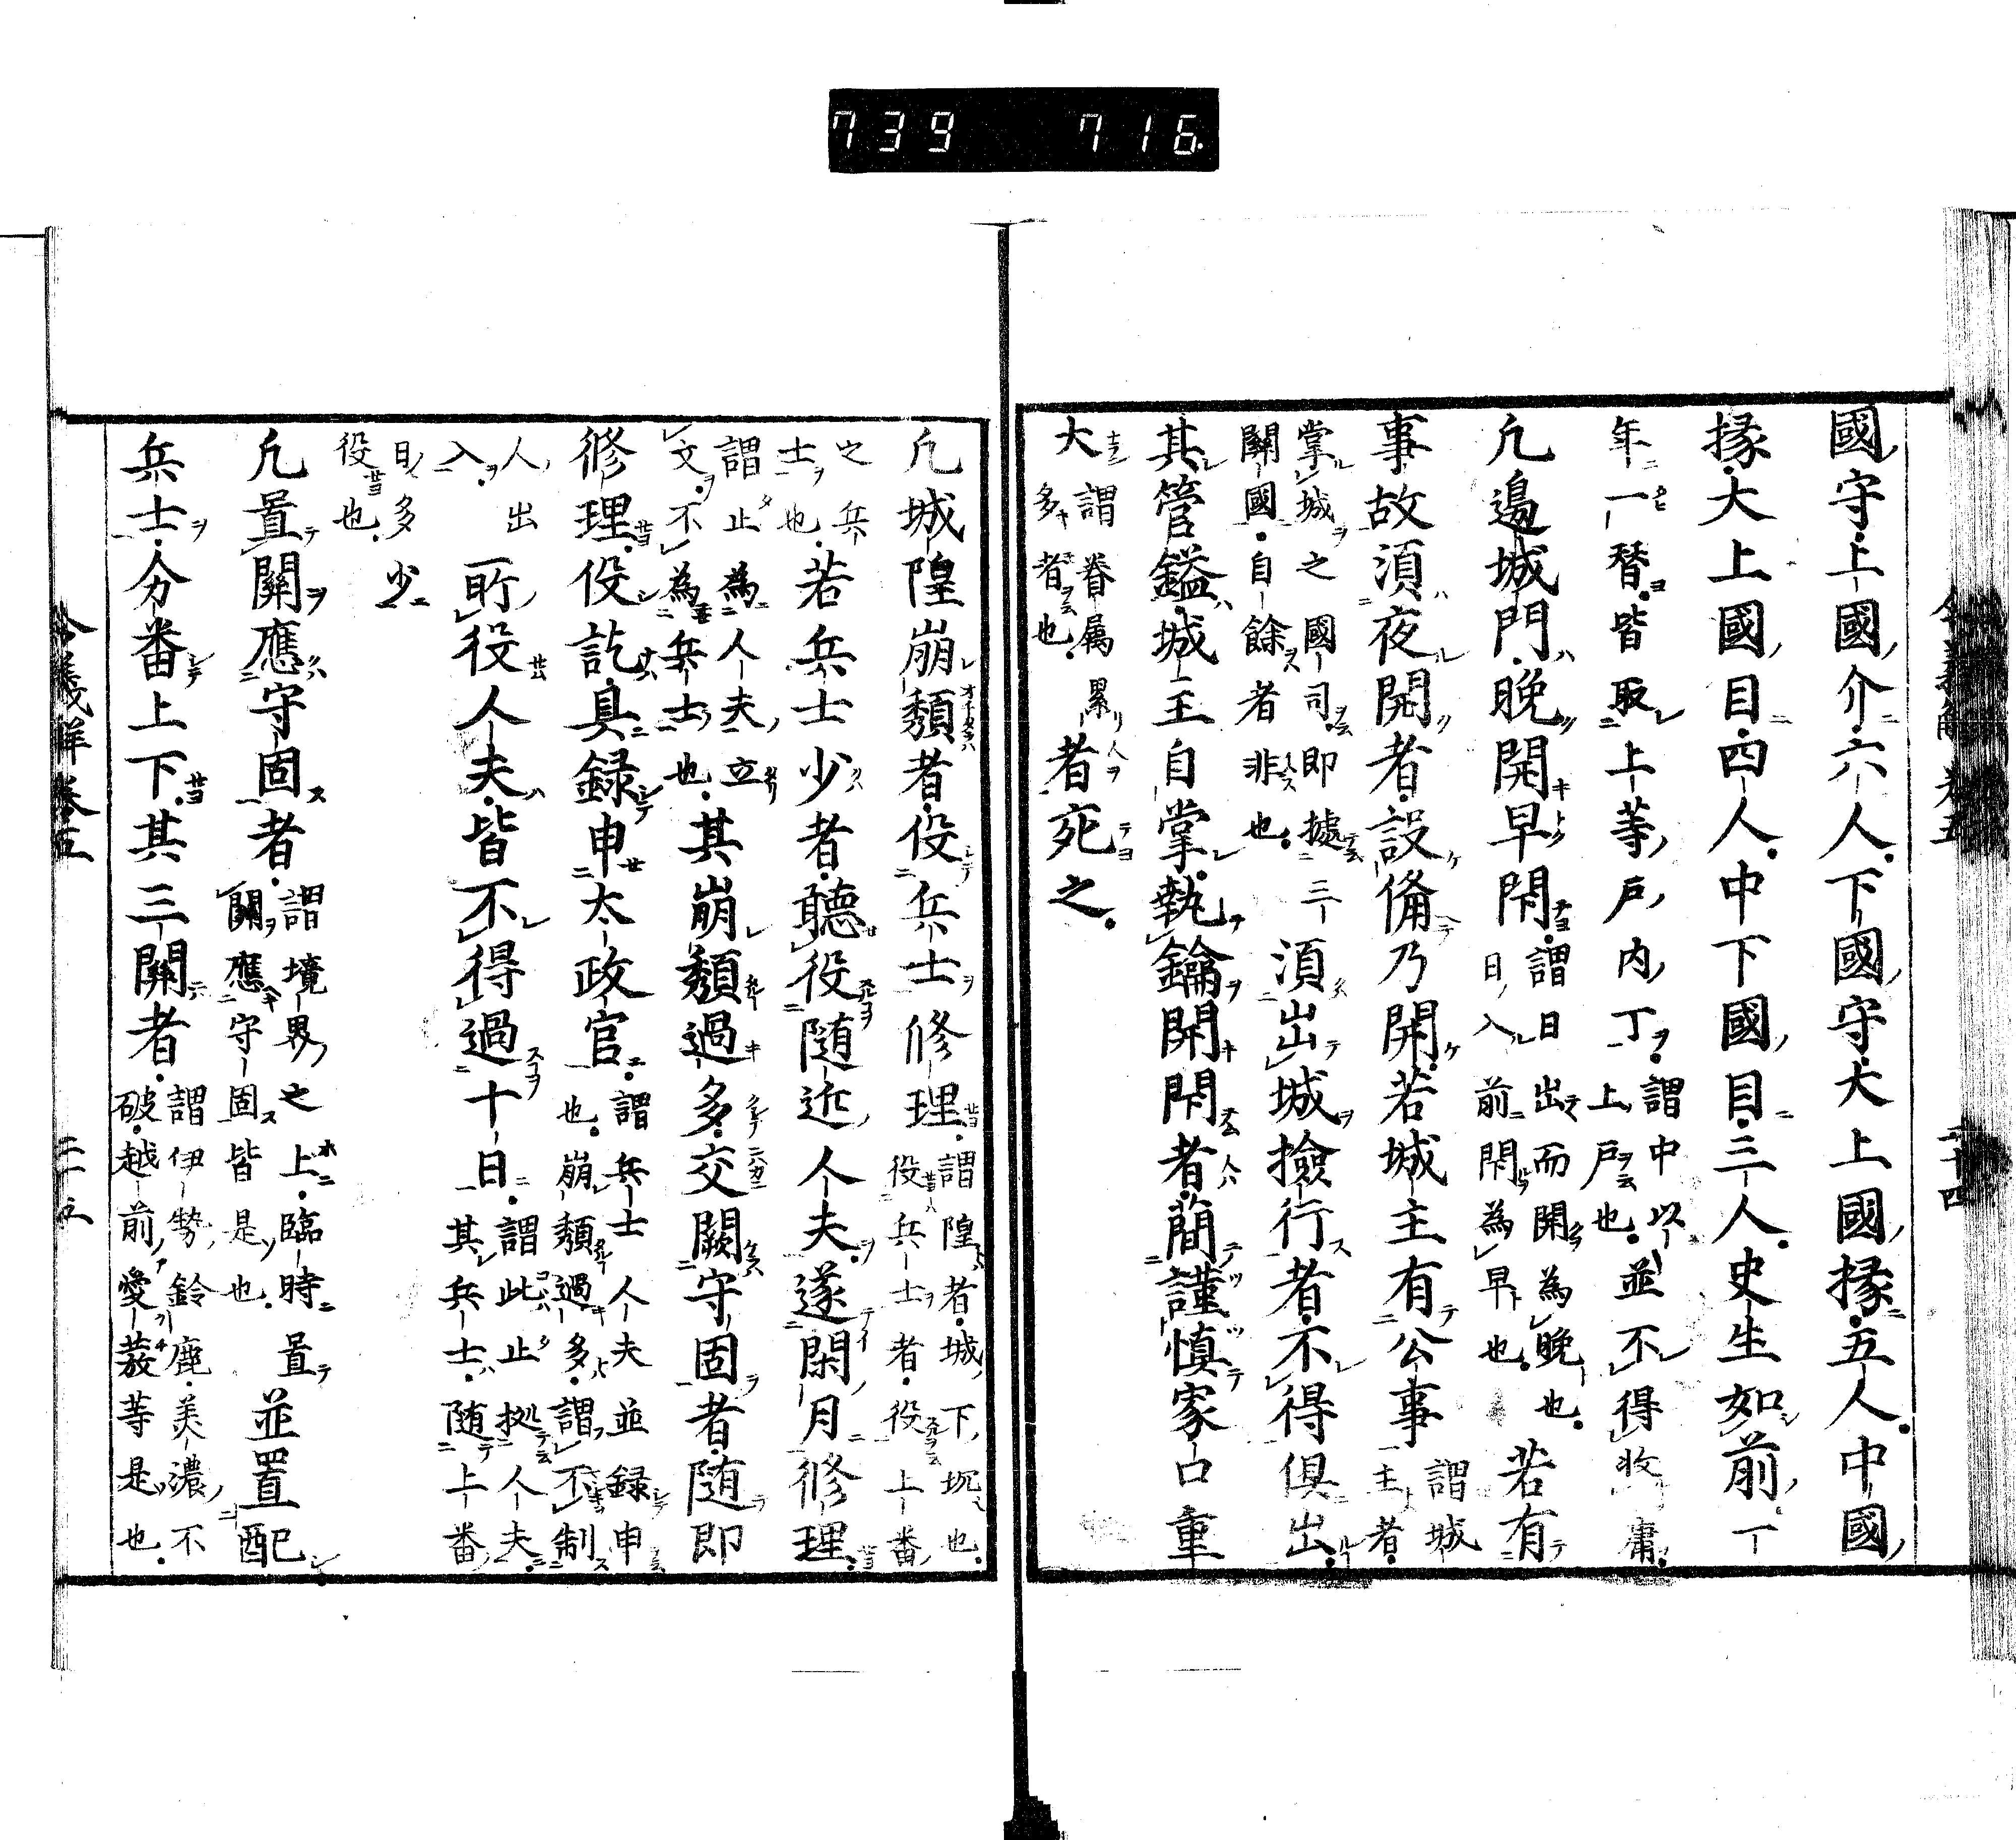 739 716
國守上國介六人下國守大上國掾五人中國
掾大上國目四人中下國目三人史生如前一
年一替皆取上等戶內丁謂中以上戶也並不得收庸
凢邊城門晚開早閇謂日出而開為晚也日入前閇為早也若有
事故須夜開者設俻乃開若城主有公事謂城主者
掌城之國司即據三關國自餘者非也須出城撿行者不得俱出
其管鎰城主自掌執鑰開閇者簡謹慎家口重
大謂眷屬累多者也者死之
凢城隍崩頽者役兵士修理謂隍者城下坑也役兵士者役上番
之兵士也若兵士少者聽役随近人夫遂閑月修理
謂止為人夫立文不為兵士也其崩頽過多交闕守固者随即
修理役訖具録申太政官謂兵士人夫並録申也崩頽過多謂不制
人出入所役人夫皆不得過十日謂此止拠人夫其兵士随上番
日多少役也
凢置關應守固者謂境界之上臨時置關應守固皆是也並置配
兵士分番上下其三關者謂伊勢鈴鹿美濃不破越前愛發等是也
令義解卷五
二十五